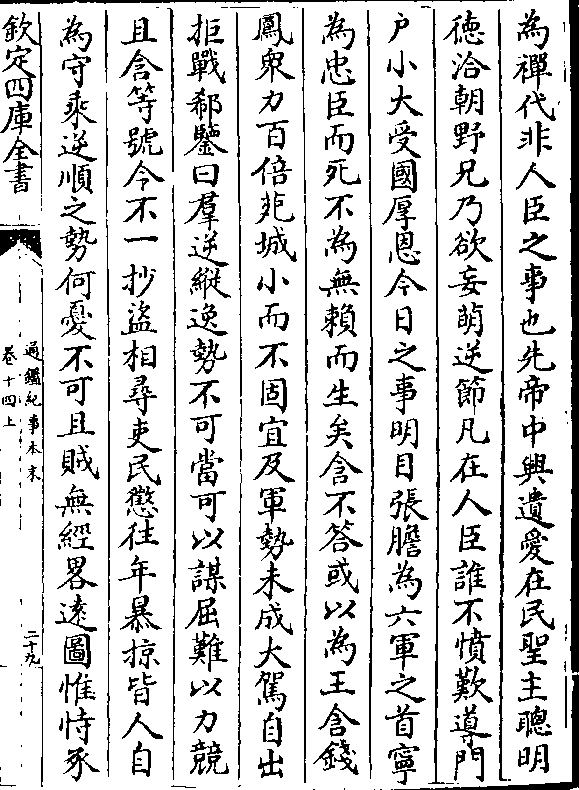 為禪代非人臣之事也先帝中興遺愛在民聖主聰明
徳洽朝野兄乃欲妄萌逆節凡在人臣誰不憤歎導門
户小大受國厚恩今日之事明目張膽為六軍之首寧
為忠臣而死不為無賴而生矣含不答或以為王含錢
鳳衆力百倍苑城小而不固宜及軍勢未成大駕自出
拒戰郗鑒曰羣逆縱逸勢不可當可以謀屈難以力競
且含等號令不一抄盜相尋吏民懲往年暴掠皆人自
為守乘逆順之勢何憂不可且賊無經畧逺圖惟恃豕
欽定四庫全書
通鑑紀事本末
卷十四上
二十九